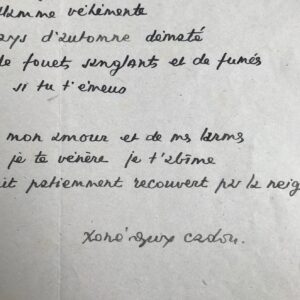 flamme véhémente
ays d'automne dématé
de fouets sanglants et de fumés
si tu t'émeus
mon amour et de mes larmes
je te vénère je t'abîme
it patiemment recouvert par la neig
cadou.